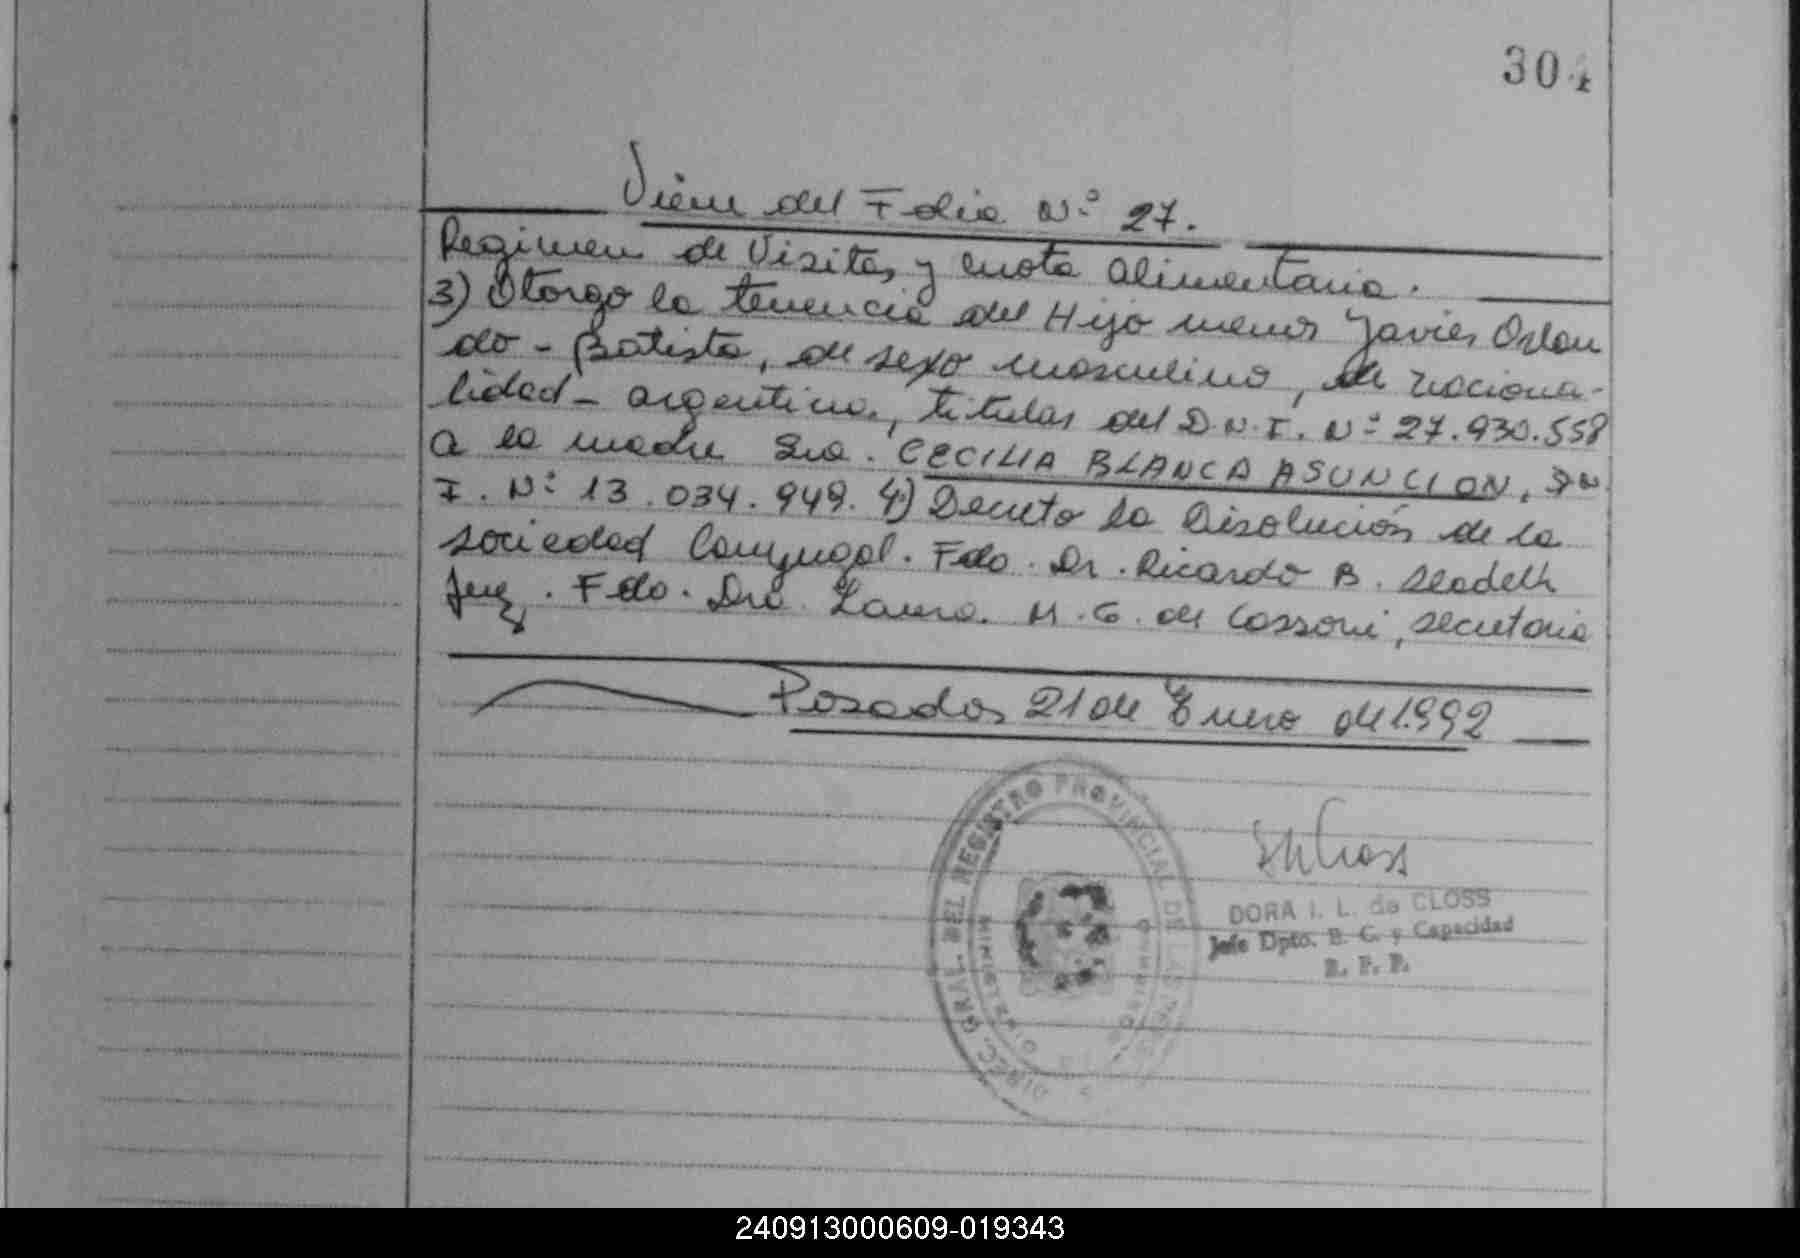 304
Viene del Folio N° 27.
Regimen de Visitas y cuota alimentaria.
3) Otorgo la tenencia del Hijo menor Javier Orlan
do - Batista, de sexo masculino, de naciona-
lidad - argentina, titular del D.N.I. N° 27.930.558
a la madre Sra. CECILIA BLANCA ASUNCION, DN
I. N° 13.034.949. 4) Decreto la Disolución de la
sociedad Conyugal. Fdo. Dr. Ricardo B.
Juez. Fdo. Dra. Laura. M.G. de Cassoni, secretaria
Posadas 21 de Enero de 1.992
DIREC. GRAL. DEL REGISTRO PROVINCIAL DE LAS
MINISTERIO DE GOBIERNO
DORA I. L. de CLOSS
Jefe Dpto. B. C. y Capacidad
R. P. P.
240913000609-019343